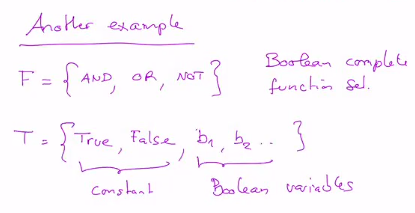 Another example
F = { AND, OR, NOT } Boolean complete
function set.
T = { True, False, b1, b2 .. }
constant Boolean variables